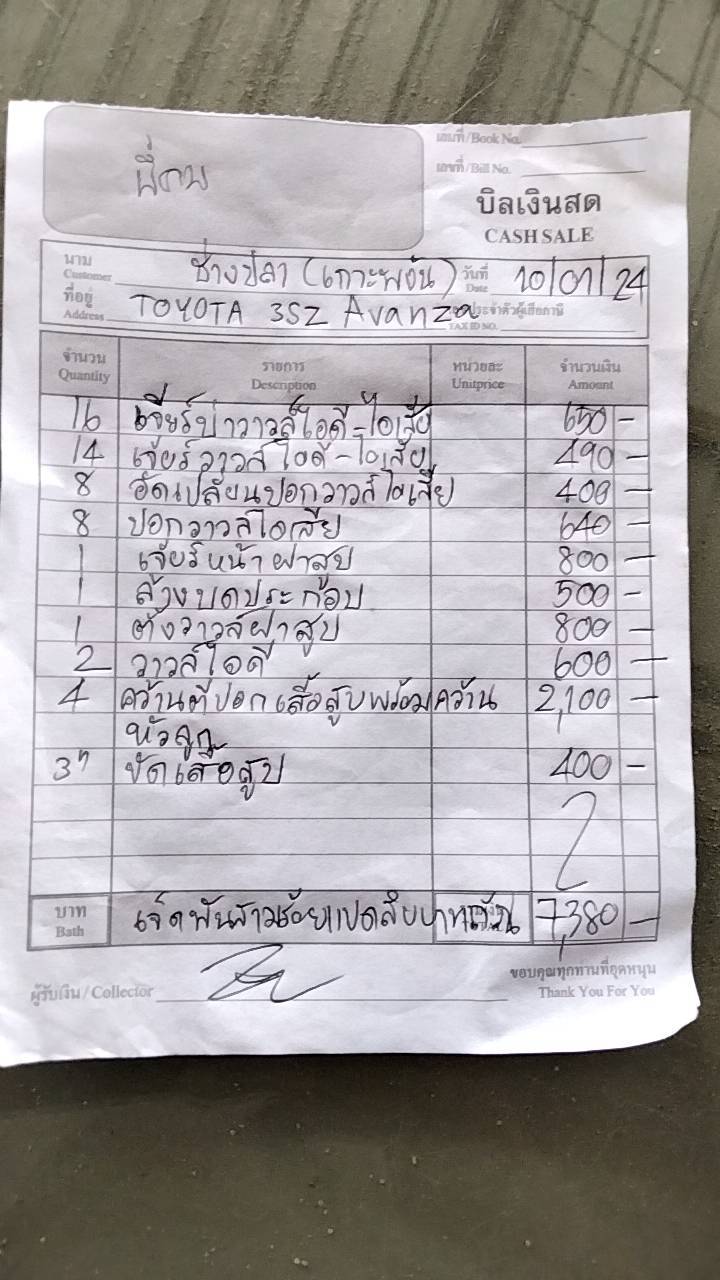 เล่มที่/Book No.
เลขที่/Bill No.
บิลเงินสด
CASH SALE
นาม
Customer ช่างปลา (เกาะพงัน) วันที่ Date 10/01/24
ที่อยู่
Address TOYOTA 3SZ Avanza ประจำตัวผู้เสียภาษี
TAX ID NO.
จำนวน รายการ หน่วยละ จำนวนเงิน
Quantity Description Unitprice Amount
16 เจียร์บ่าวาวล์ไอดี-ไอเสีย 650 -
14 เจียร์วาวล์ไอดี-ไอเสีย 490 -
8 อัดเปลี่ยนปอกวาวล์ไอเสีย 400 -
8 ปอกวาวล์ไอเสีย 640 -
1 เจียร์หน้าฝาสูบ 800 -
1 ล้างบดประกอบ 500 -
1 ตั้งวาวล์ฝาสูบ 800 -
2 วาวล์ไอดี 600 -
4 คว้านตีปอกเสื้อสูบพร้อมคว้าน 2,100 -
หัวลูก
3" ขัดเสื้อสูบ 400 -
บาท เจ็ดพันสามร้อยแปดสิบบาทถ้วน 7,380 -
Bath
ขอบคุณทุกท่านที่อุดหนุน
ผู้รับเงิน/Collector Thank You For You